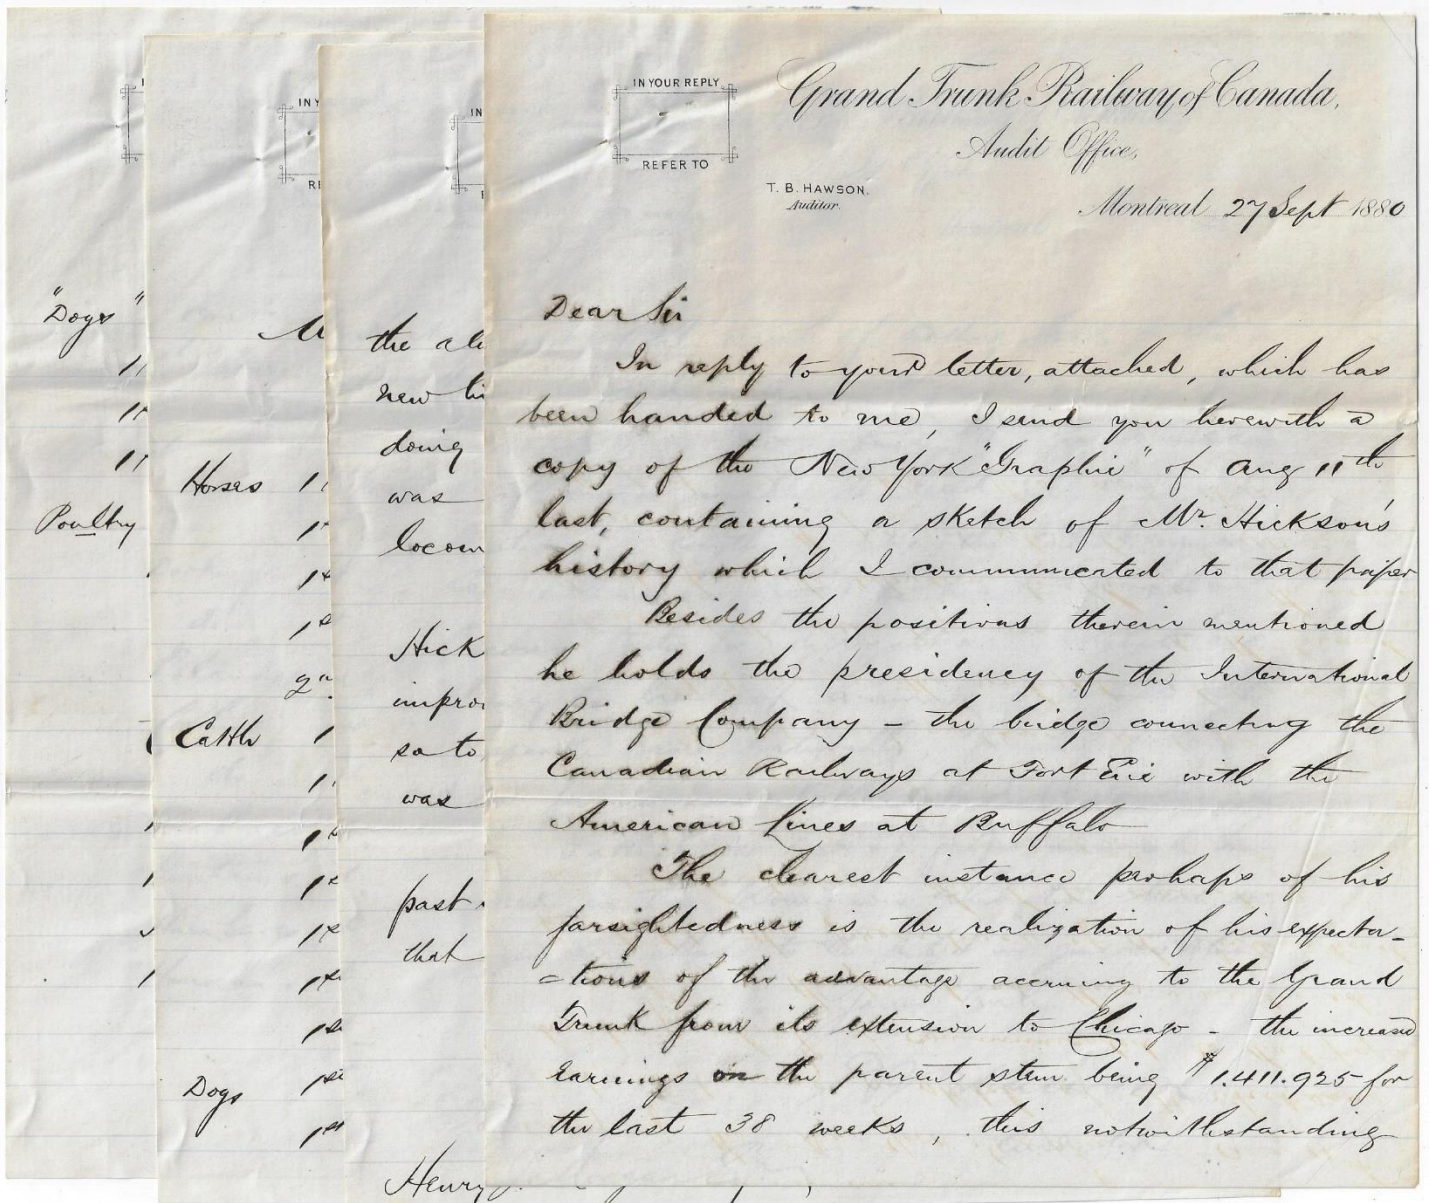 IN YOUR REPLY
REFER TO
Grand Trunk Railway of Canada,
Audit Office,
T. B. HAWSON.
Auditor.
Montreal 27 Sept 1880
Dear Sir
In reply to your letter, attached, which has
been handed to me, I send you herewith a
copy of the New York "Graphic" of Aug 11th
last, containing a sketch of Mr. Hickson's
history which I communicated to that paper
Besides the positions therein mentioned
he holds the presidency of the International
Bridge Company – the bridge connecting the
Canadian Railways at Fort Erie with the
American lines at Buffalo
The clearest instance perhaps of his
farsightedness is the realization of his expecta-
-tions of the advantage accruing to the Grand
Trunk from its extension to Chicago – the increased
earnings on the parent stem being $1.411.925 for
the last 38 weeks, this notwithstanding
the
new
doing
was
locom
Hick
impro
so to
was
past
that
Henry
Horses
Cattle
Dogs
"Dogs"
Poultry